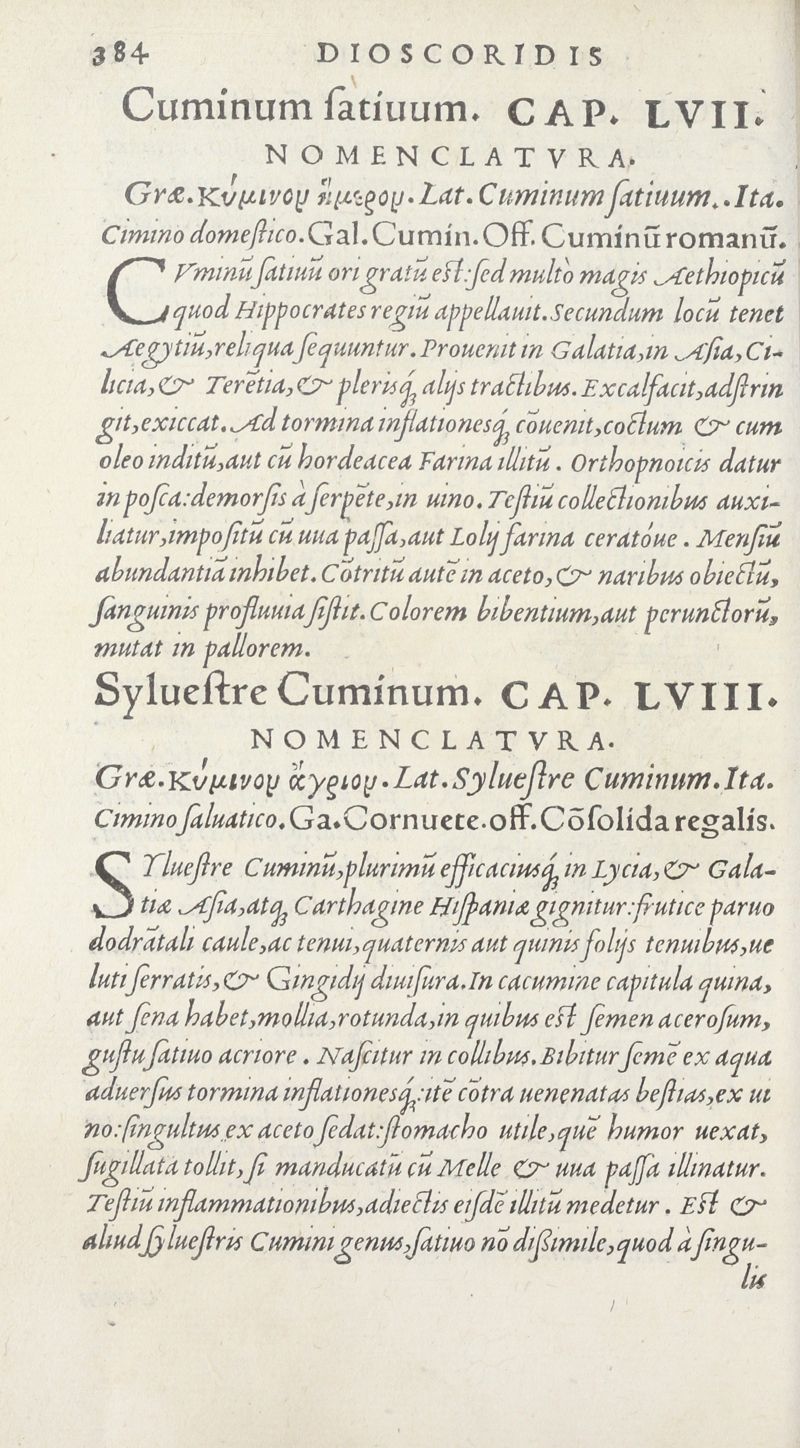 384 DIOSCORIDIS
Cuminum ſatiuum. CAP. LVII.
NOMENCLATVRA.
Græ. Κύμινον ἥμερον. Lat. Cuminum ſatiuum. . Ita.
Cimino domeſtico. Gal. Cumin. Off. Cuminū romanū.
CVminū ſatiuū ori gratū eſt: ſed multò magis Aethiopicū
quod Hippocrates regiū appellauit. Secundum locū tenet
Aegytiū, reliqua ſequuntur. Prouenit in Galatia, in Aſia, Ci-
licia, & Terētia, & pleriſq́; alijs tractibus. Excalfacit, adſtrin
git, exiccat. Ad tormina inflationesq́; cōuenit, coctum & cum
oleo inditū, aut cū hordeacea Farina illitū. Orthopnoicis datur
in poſca: demorſis à ſerpēte, in uino. Teſtiū collectionibus auxi-
liatur, impoſitū cū uua paſſa, aut Lolij farina ceratóue. Menſiū
abundantiā inhibet. Cōtritū autē in aceto, & naribus obiectū,
ſanguinis profluuia ſiſtit. Colorem bibentium, aut perunctorū,
mutat in pallorem.
Sylueſtre Cuminum. CAP. LVIII.
NOMENCLATVRA.
Græ. Κύμινον ἄγριον. Lat. Sylueſtre Cuminum. Ita.
Cimino ſaluatico. Ga. Cornuete. off. Cōſolida regalis.
SYlueſtre Cuminū, plurimū efficaciusq́; in Lycia, & Gala-
tiæ Aſia, atq; Carthagine Hiſpaniæ gignitur: frutice paruo
dodrātali caule, ac tenui, quaternis aut quinis folijs tenuibus, ue
luti ſerratis, & Gingidij diuiſura. In cacumine capitula quina,
aut ſena habet, mollia, rotunda, in quibus eſt ſemen aceroſum,
guſtu ſatiuo acriore. Naſcitur in collibus. Bibitur ſemē ex aqua
aduerſus tormina inflationesq́;: itē cōtra uenenatas beſtias, ex ui
no: ſingultus ex aceto ſedat: ſtomacho utile, quē humor uexat,
ſugillata tollit, ſi manducatū cū Melle & uua paſſa illinatur.
Teſtiū inflammationibus, adiectis eiſdē illitū medetur. Eſt &
aliud ſylueſtris Cumini genus, ſatiuo nō dißimile, quod à ſingu-
lis